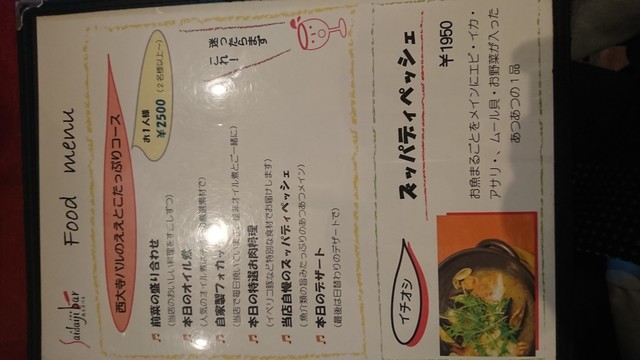 Saidaiji bar
Food menu
西大寺バルのええとこたっぷりコース
お1人様
¥2500 (2名様以上～)
迷ったらまず
これ!
♫ 前菜の盛り合わせ
(当店のおいしい料理を少しずつ)
♫ 本日のオイル煮
(人気のオイル煮は
♫ 自家製フォカッ
(当店で毎日焼いています。是非オイル煮とご一緒に)
♫ 本日の特選お肉料理
(イベリコ豚など特別な食材でお届けします)
♫ 当店自慢のズッパディペッシェ
(魚介類の旨みたっぷりのあつあつメイン)
♫ 本日のデザート
(最後は日替わりのデザートで)
イチオシ
ズッパディペッシェ
¥1950
お魚まるごとをメインにエビ・イカ・
アサリ・、ムール貝・お野菜が入った
あつあつの1品